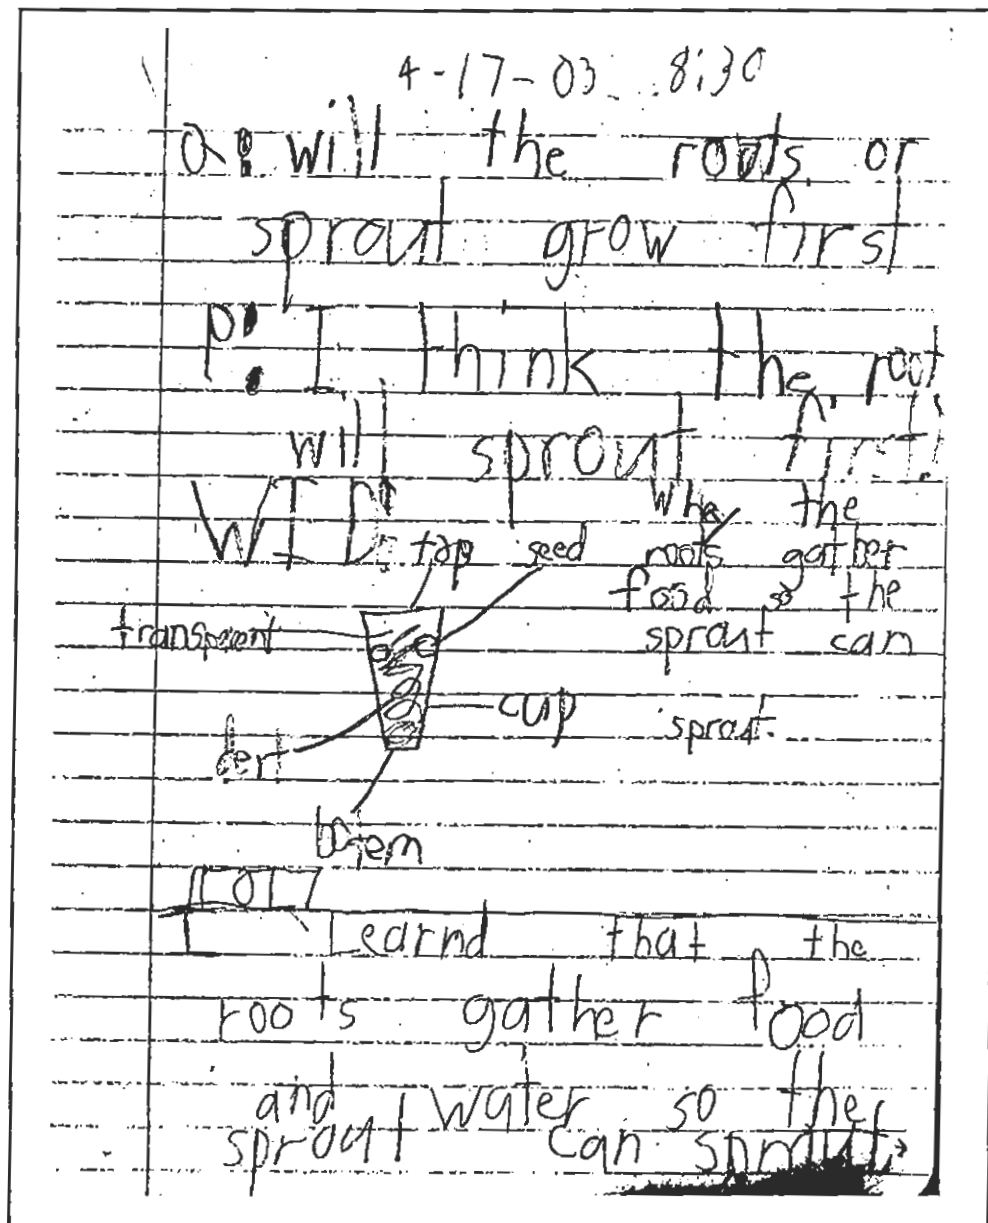 4-17-03 8:30
Q: will the roots or
sprout grow first
P: I think the root
will sprout first.
WID
whe the
roots gather
food so the
sprout can
sprout.
top seed
transperent
cup
dert
botem
I Learnd that the
roots gather food
and water so the
sprout can sprout